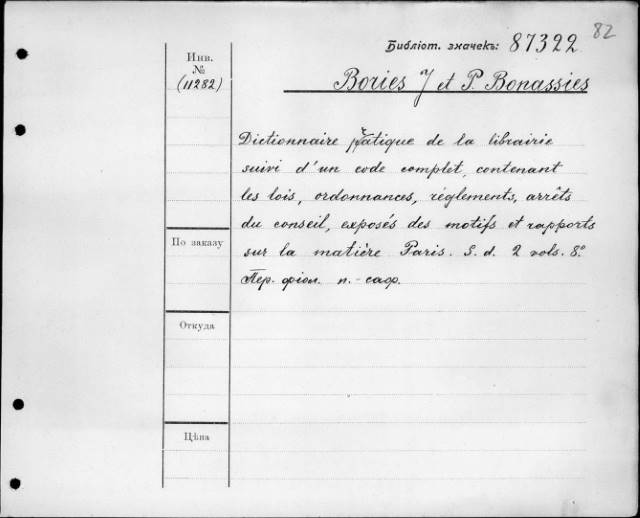 82
Библіот. значекъ: 87322
Инв.
№
(11282)
Bories J et P. Bonassies
Dictionnaire pratique de la librairie
suivi d'un code complet, contenant
les lois, ordonnances, règlements, arrêts
du conseil, exposés des motifs et rapports
По заказу
sur la matière Paris. S. d. 2 vols. 8º
Пер. фіол. п.-саф.
Откуда
Цѣна